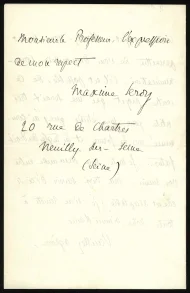 Monsieur le Professeur, l'expression
de mon respect
Maxime Leroy
20 rue de Chartres
Neuilly sur-Seine
(Seine)